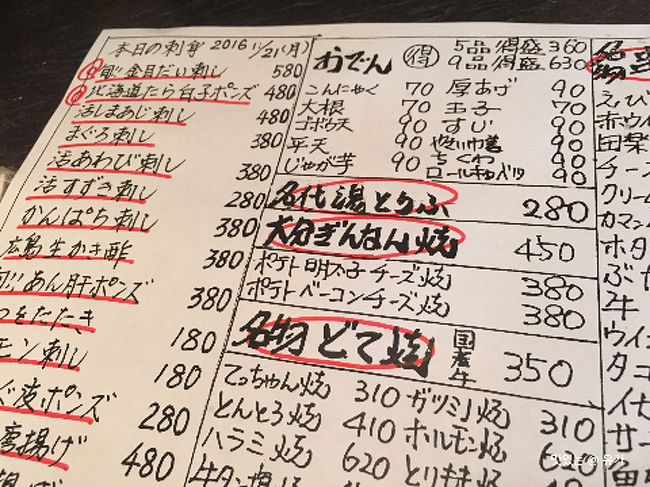 本日の刺身 2016 11/21(月)
旬!! 金目だい刺し 580
北海道たら白子ポンズ 480
活しまあじ刺し 480
まぐろ刺し 380
活あわび刺し 380
活すずき刺し 280
かんぱち刺し 380
広島生かき酢 380
旬!! あん肝ポンズ 380
つをたたき 180
モン刺し 180
ぐ皮ポンズ 280
唐揚げ 480
おでん 得 5品得盛 360
9品得盛 630
こんにゃく 70 厚あげ 90
大根 70 玉子 70
ゴボウ天 90 すじ 90
平天 90 やきいか 90
じゃが芋 90 ちくわ 90
ロールキャベツ 90
名代湯とうふ 280
大分ぎんなん焼 450
ポテト明太子チーズ焼 380
ポテトベーコンチーズ焼 380
名物どて焼 国産牛 350
てっちゃん焼 310 ガツミノ焼 310
とんとろ焼 410 ホルモン焼
ハラミ焼 620 とりキモ焼
牛タン
えび
赤ウイ
田楽
チーズ
クリーム
カマン
ホタ
ぶち
牛
ウイ
タコ
イセ
サー
魚